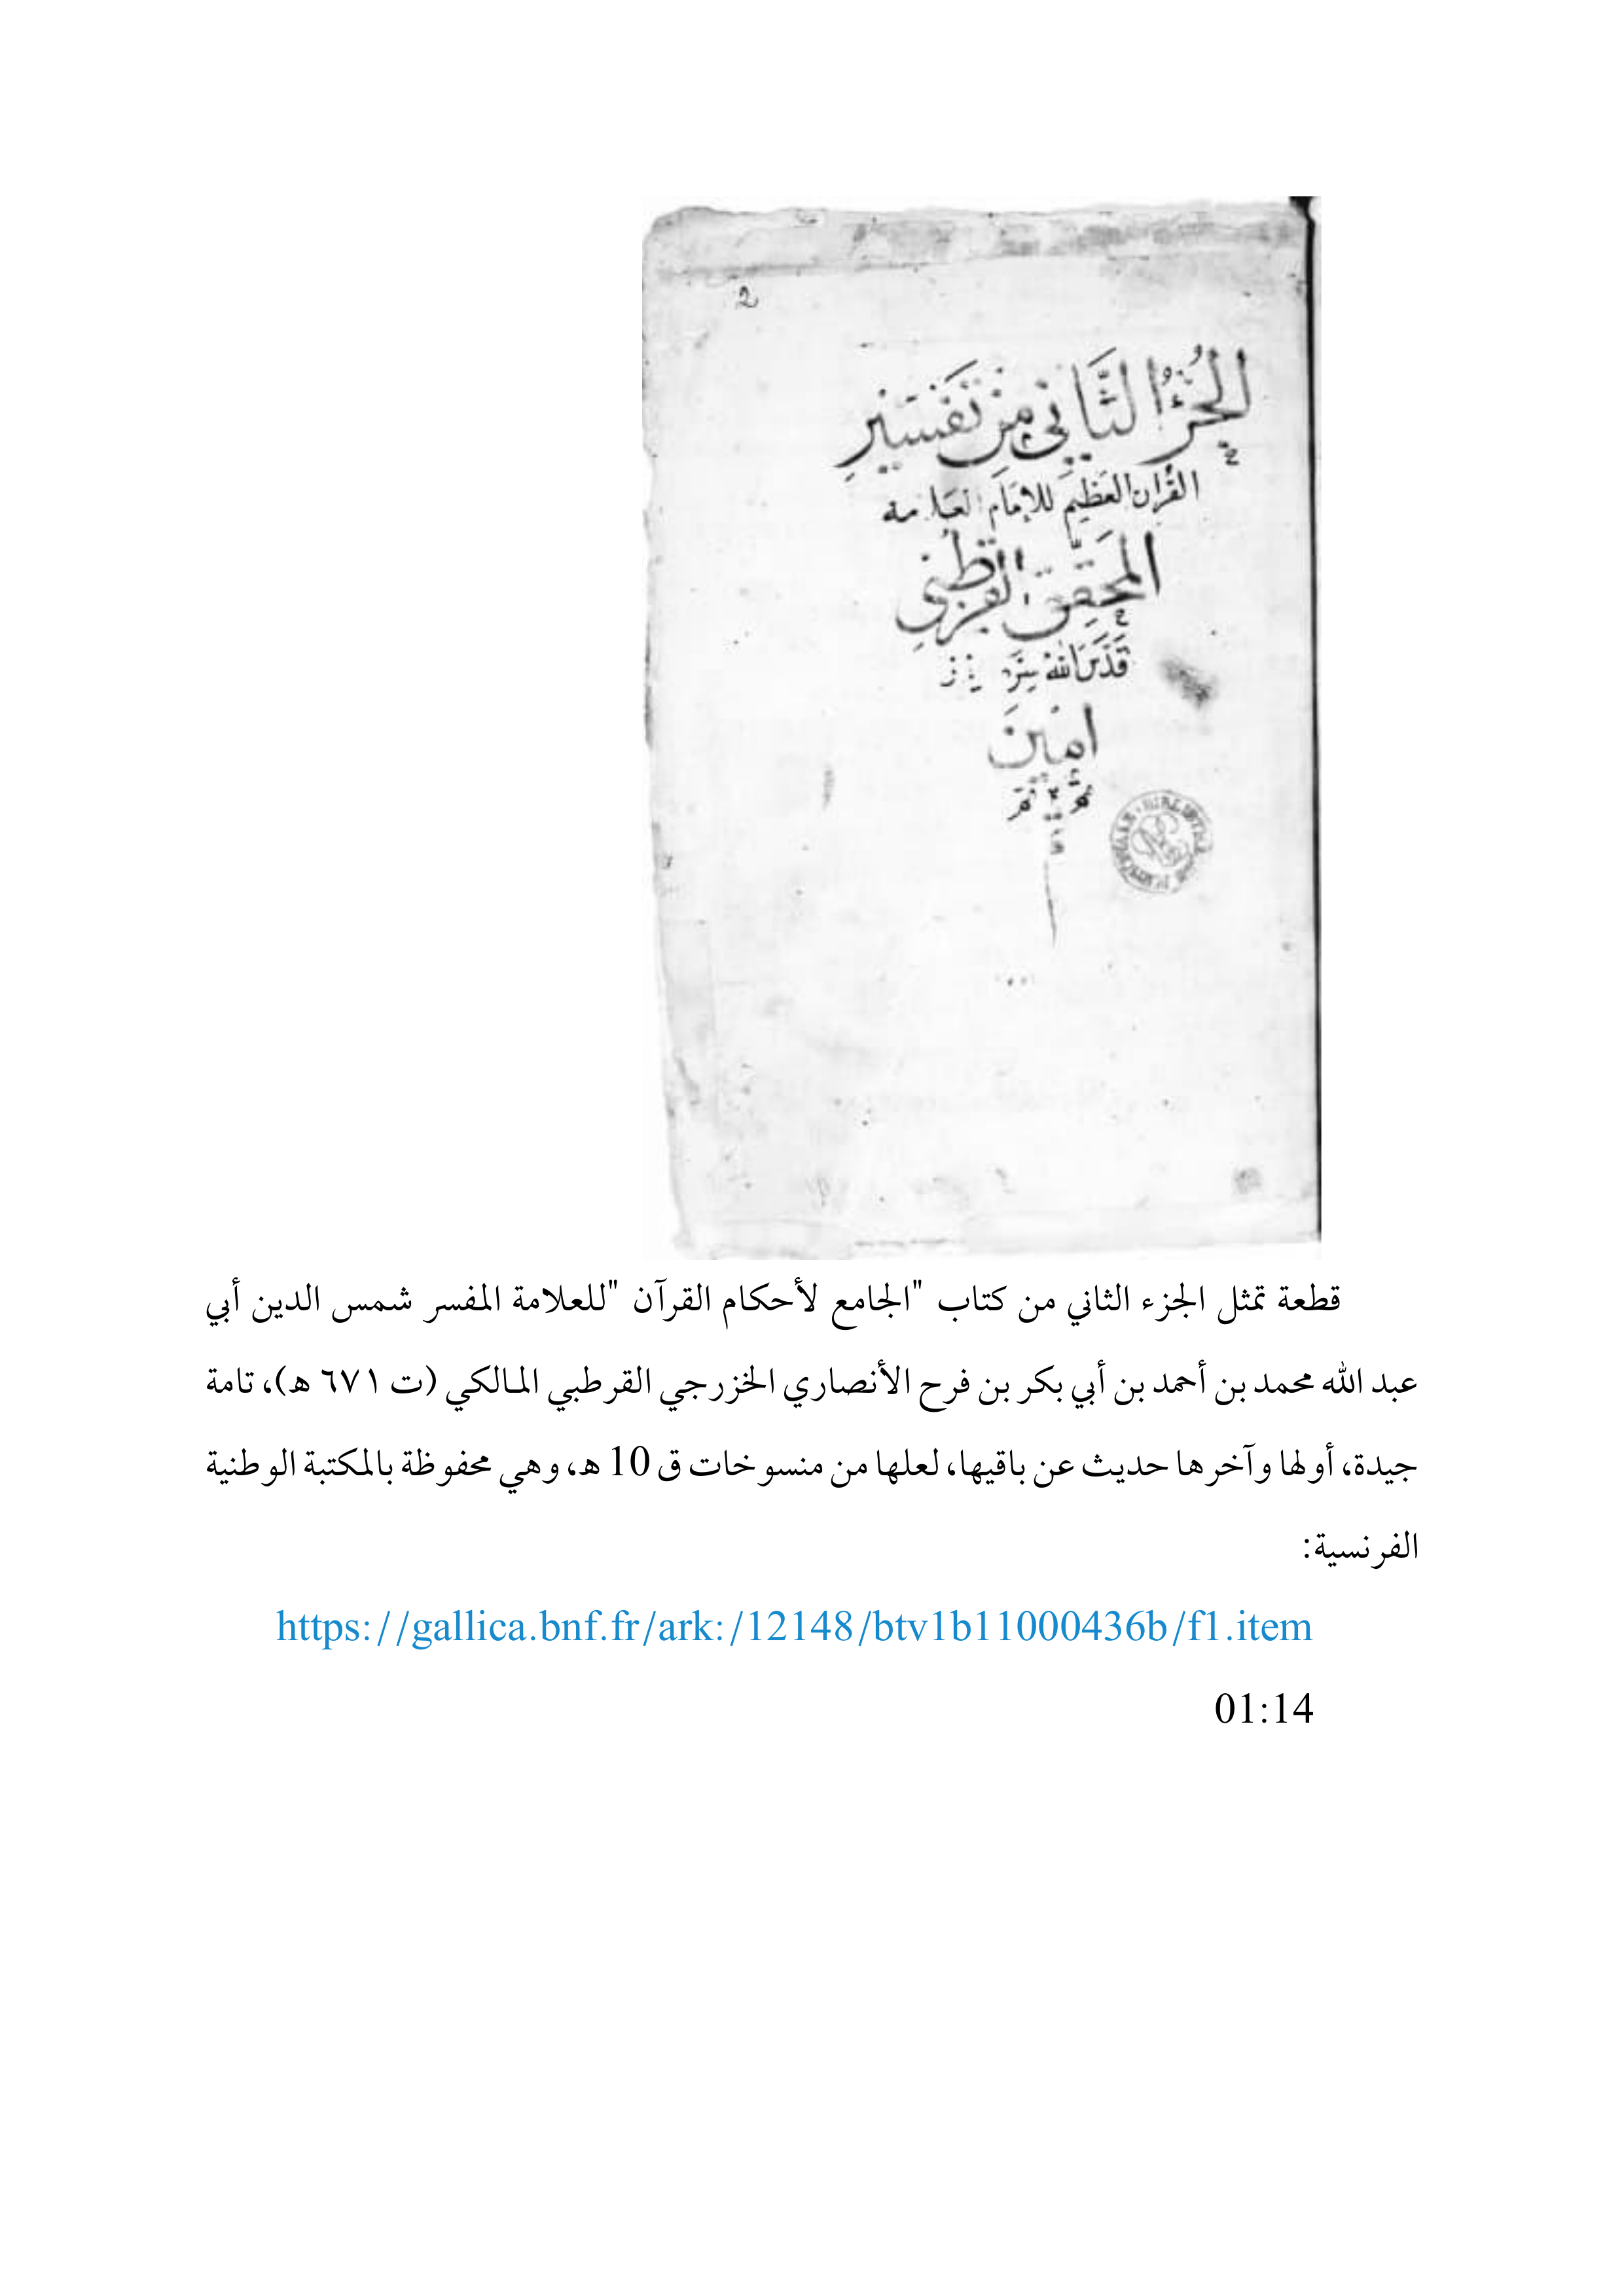 2
الجُزْءُ الثَّانِي مِنْ تَفْسِيرِ
القُرآن العَظِيمِ لِلإِمَامِ العَلامه
المُحَقِّقِ القُرطُبِي
قَدَّسَ اللهُ سِرَّه
امِينَ
قطعة تمثل الجزء الثاني من كتاب "الجامع لأحكام القرآن "للعلامة المفسر شمس الدين أبي
عبد الله محمد بن أحمد بن أبي بكر بن فرح الأنصاري الخزرجي القرطبي المالكي (ت ٦٧١ ه)، تامة
جيدة، أولها وآخرها حديث عن باقيها، لعلها من منسوخات ق 10 ه، وهي محفوظة بالمكتبة الوطنية
الفرنسية:
https://gallica.bnf.fr/ark:/12148/btv1b11000436b/f1.item
01:14